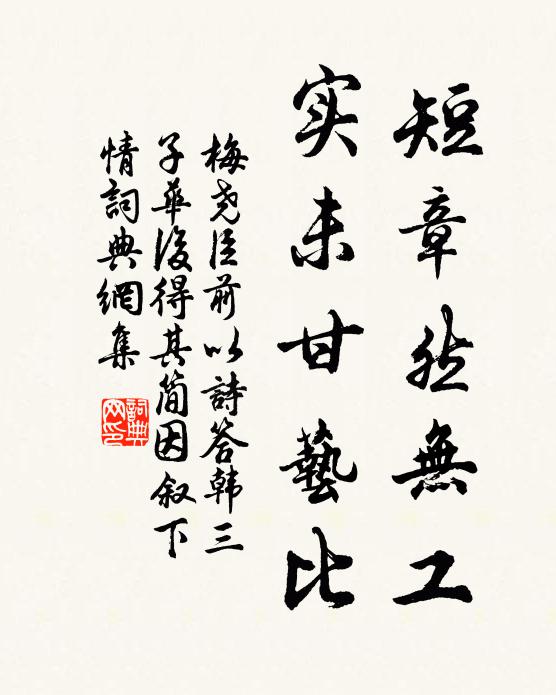 短章然無工
实未甘藝比
梅尧臣前以詩答韓三
子華後得其简因叙下
情詞典網集
詞典
网印